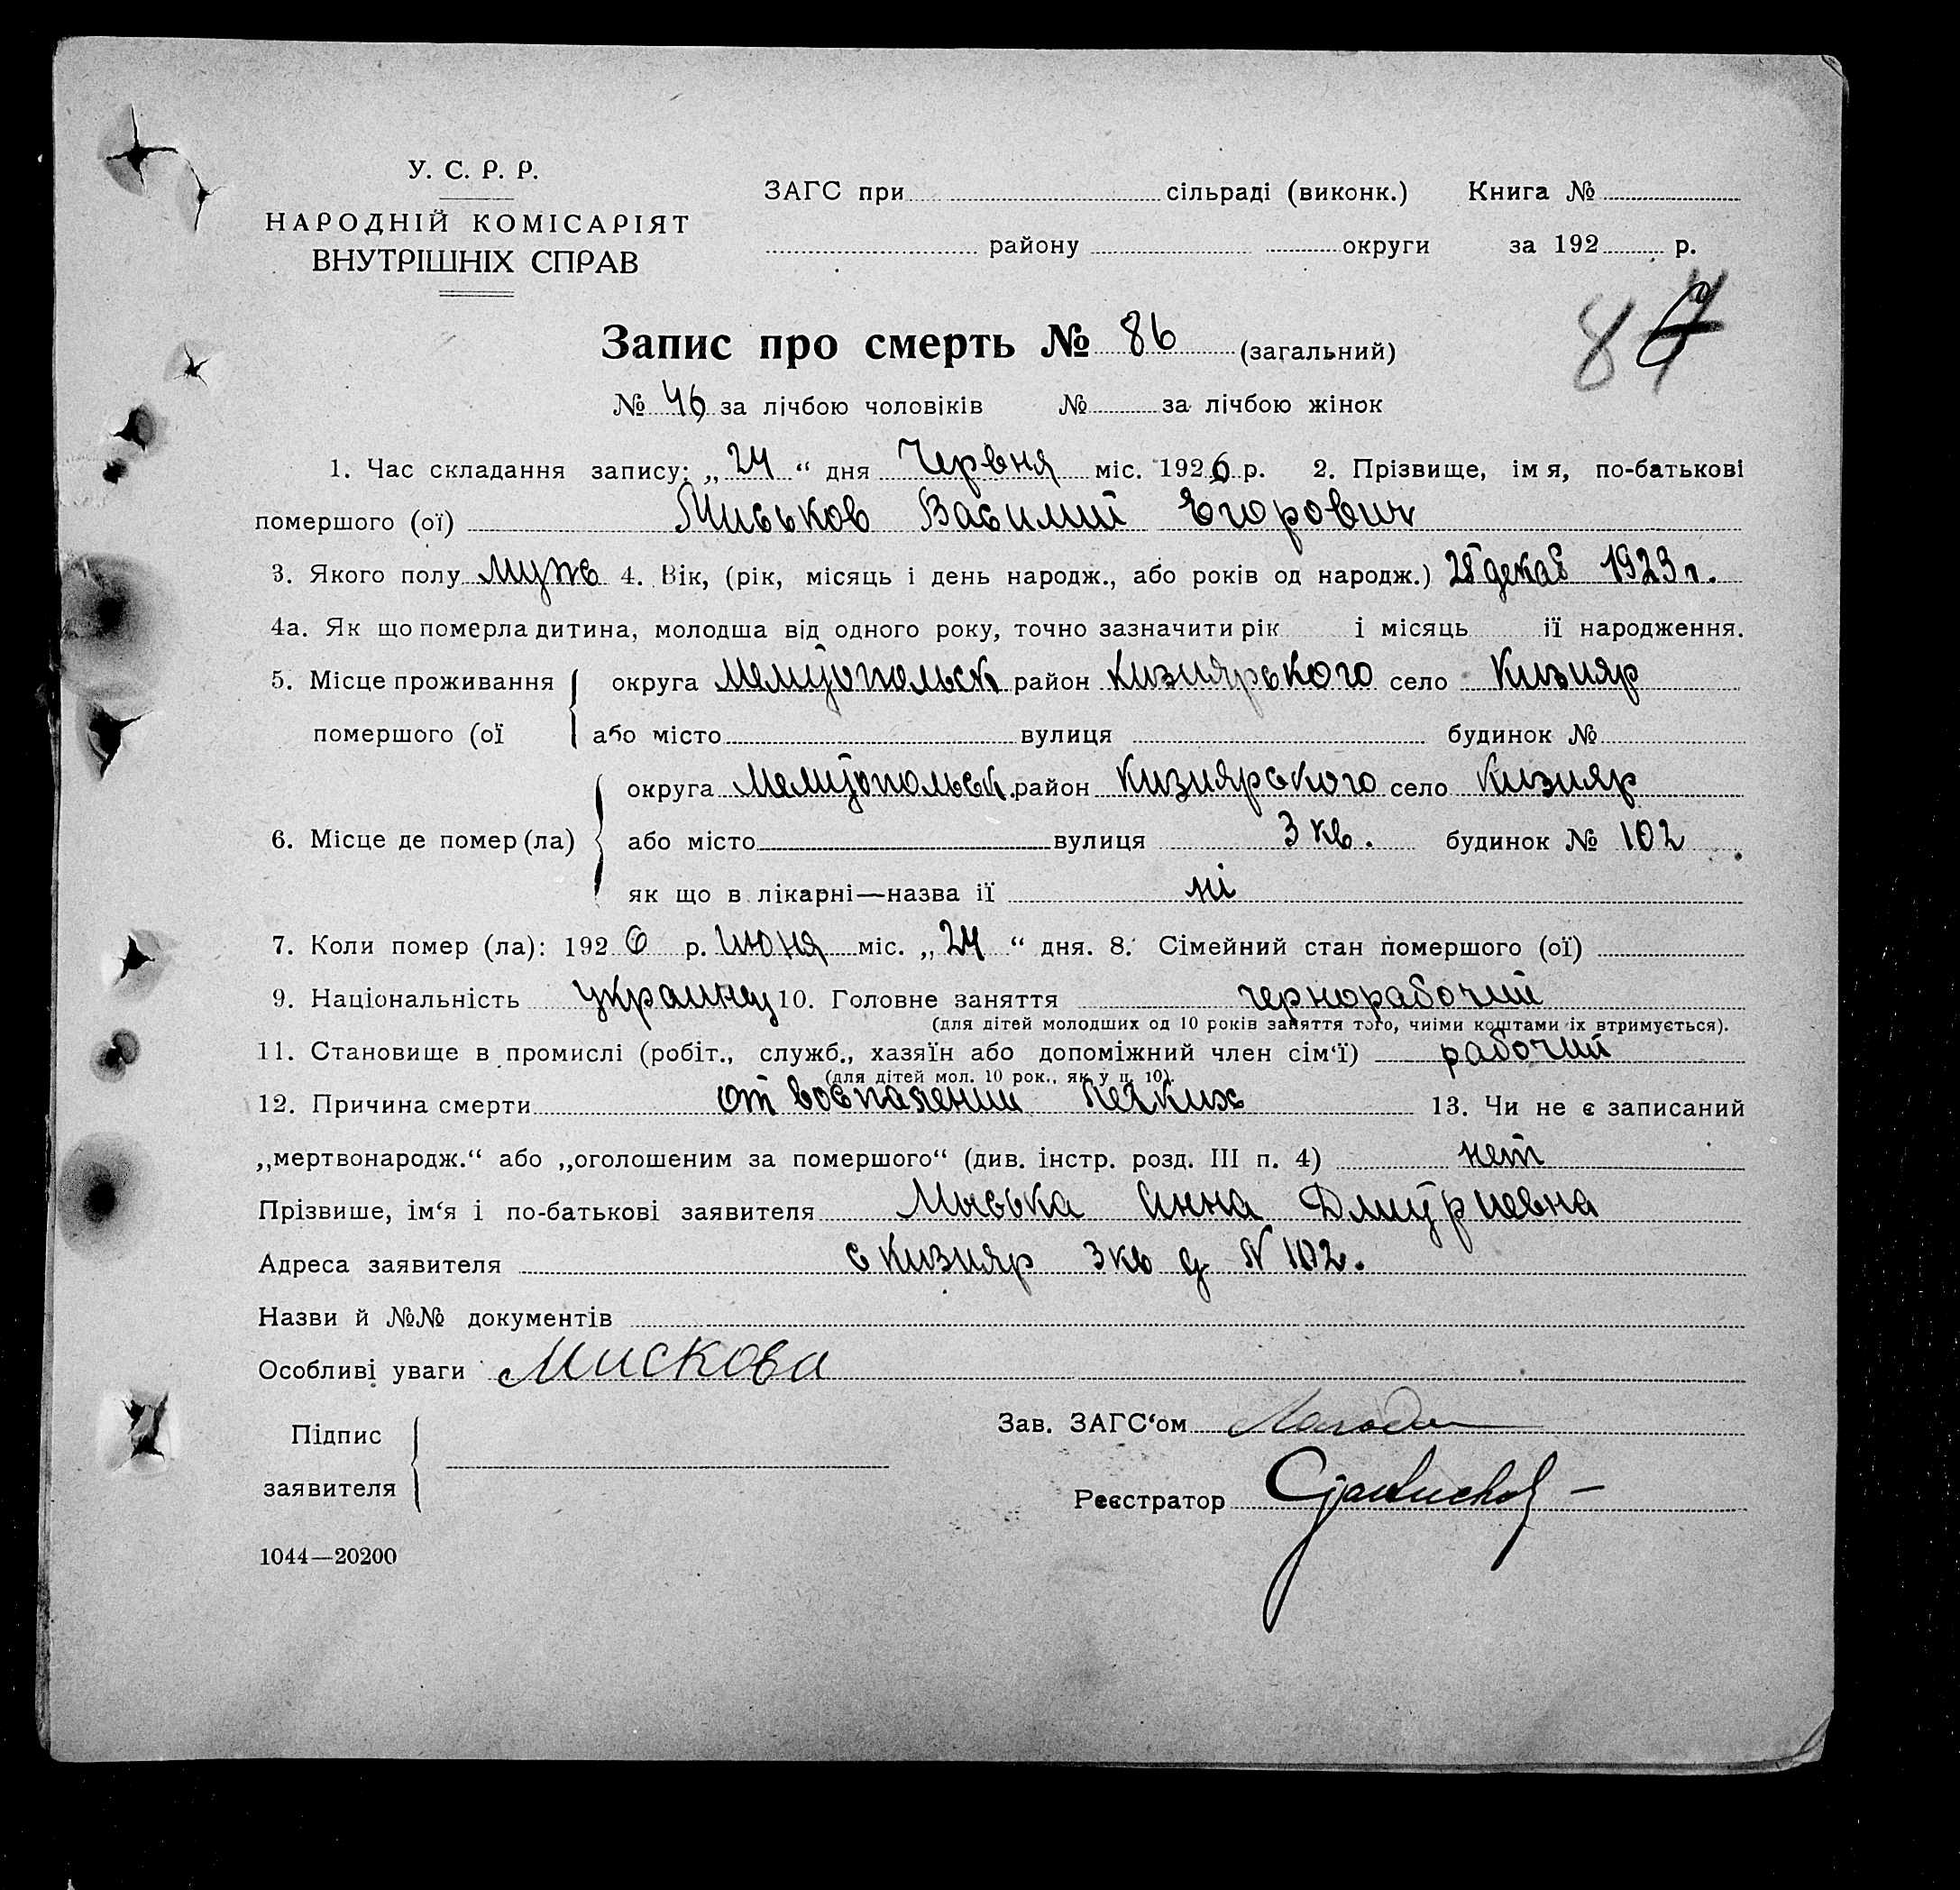 У. С. Р. Р.
НАРОДНІЙ КОМІСАРІЯТ
ВНУТРІШНІХ СПРАВ
ЗАГС при сільраді (виконк.) Книга №
району округи за 192 р.
Запис про смерть № 86 (загальний)
87
№ 46 за лічбою чоловіків № за лічбою жінок
1. Час складання запису: „24“ дня Червня міс. 1926 р. 2. Прізвище, імя, по-батькові
помершого (ої) Миськов Василий Егорович
3. Якого полу мужс 4. Вік, (рік, місяць і день народж., або років од народж.) 28 декаб 1923 г.
4а. Як що померла дитина, молодша від одного року, точно зазначити рік і місяць її народження.
5. Місце проживання округа Мелитопольск район Кизиярського село Кизияр
помершого (ої або місто вулиця будинок №
округа Мелитопольск. район Кизиярского село Кизияр
6. Місце де помер (ла) або місто вулиця 3 кв. будинок № 102
як що в лікарні—назва її ні
7. Коли помер (ла): 1926 р. июня міс. „24“ дня. 8. Сімейний стан помершого (ої)
9. Національність украинец 10. Головне заняття чернорабочий
(для дітей молодших од 10 років заняття того, чиїми коштами їх втримується).
11. Становище в промислі (робіт., служб., хазяїн або допоміжний член сім‘ї) рабочий
(для дітей мол. 10 рок., як у п. 10).
12. Причина смерти от воспалении легких 13. Чи не є записаний
„мертвонародж.“ або „оголошеним за помершого“ (див. інстр. розд. III п. 4) нет
Прізвише, ім‘я і по-батькові заявителя Миська Анна Дмитриевна
Адреса заявителя с Кизияр 3 кв д N 102.
Назви й №№ документів
Особливі уваги Мискова
Підпис
заявителя
Зав. ЗАГС‘ом
Реєстратор
1044—20200